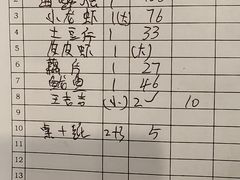 3 小龙虾 1(大) 76
4 土豆片 1 33
5 皮皮虾 1(大)
6 藕片 1 27
7 鱿鱼 1 46
8 王老吉 (小)2 10
9
10 桌+纸 2+3 5